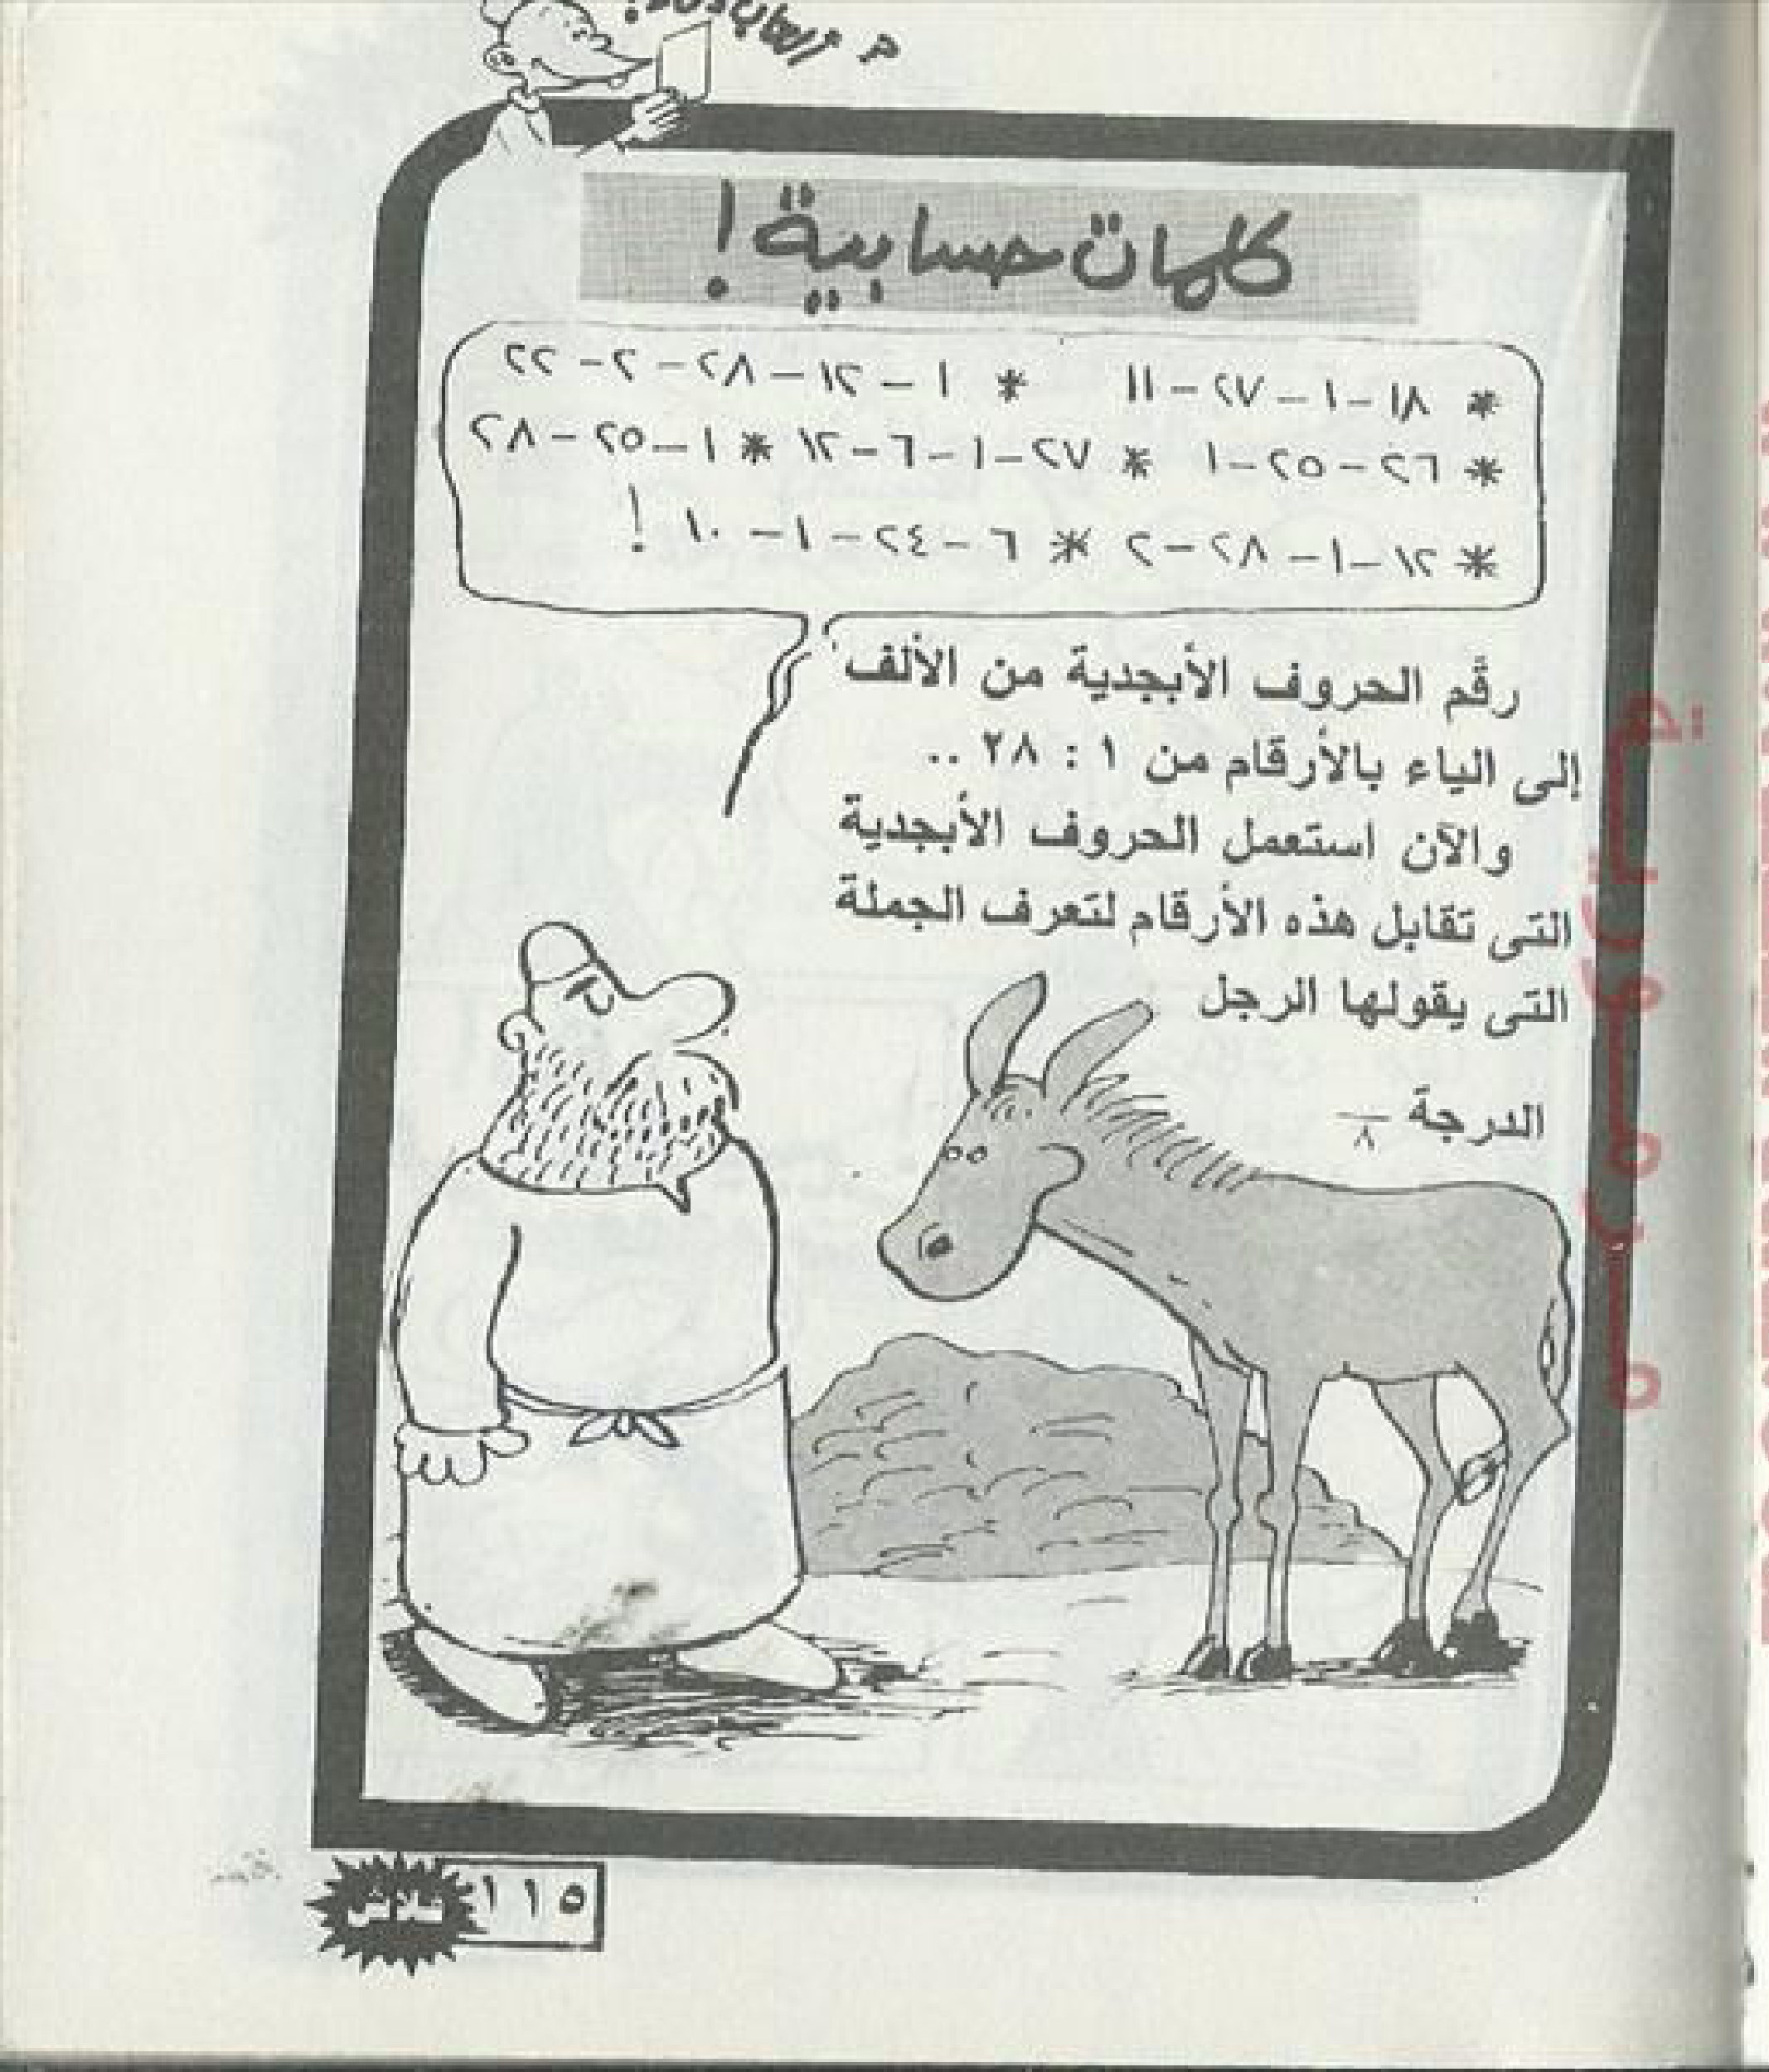 كلمات حسابية !
* ١٨-١-٢٧-١١ * ١-١٢-٢٨-٢-٢٢
* ٢٦-٢٥-١ * ٢٧-١-٦-١٢ * ١-٢٥-٢٨
* ١٢-١-٢٨-٢ * ٦-٢٤-١-١٠ !
رقّم الحروف الأبجدية من الألف
إلى الياء بالأرقام من ١ : ٢٨ ..
والآن استعمل الحروف الأبجدية
التى تقابل هذه الأرقام لتعرف الجملة
التى يقولها الرجل
الدرجة ــ
٨
١١٥ فلاش